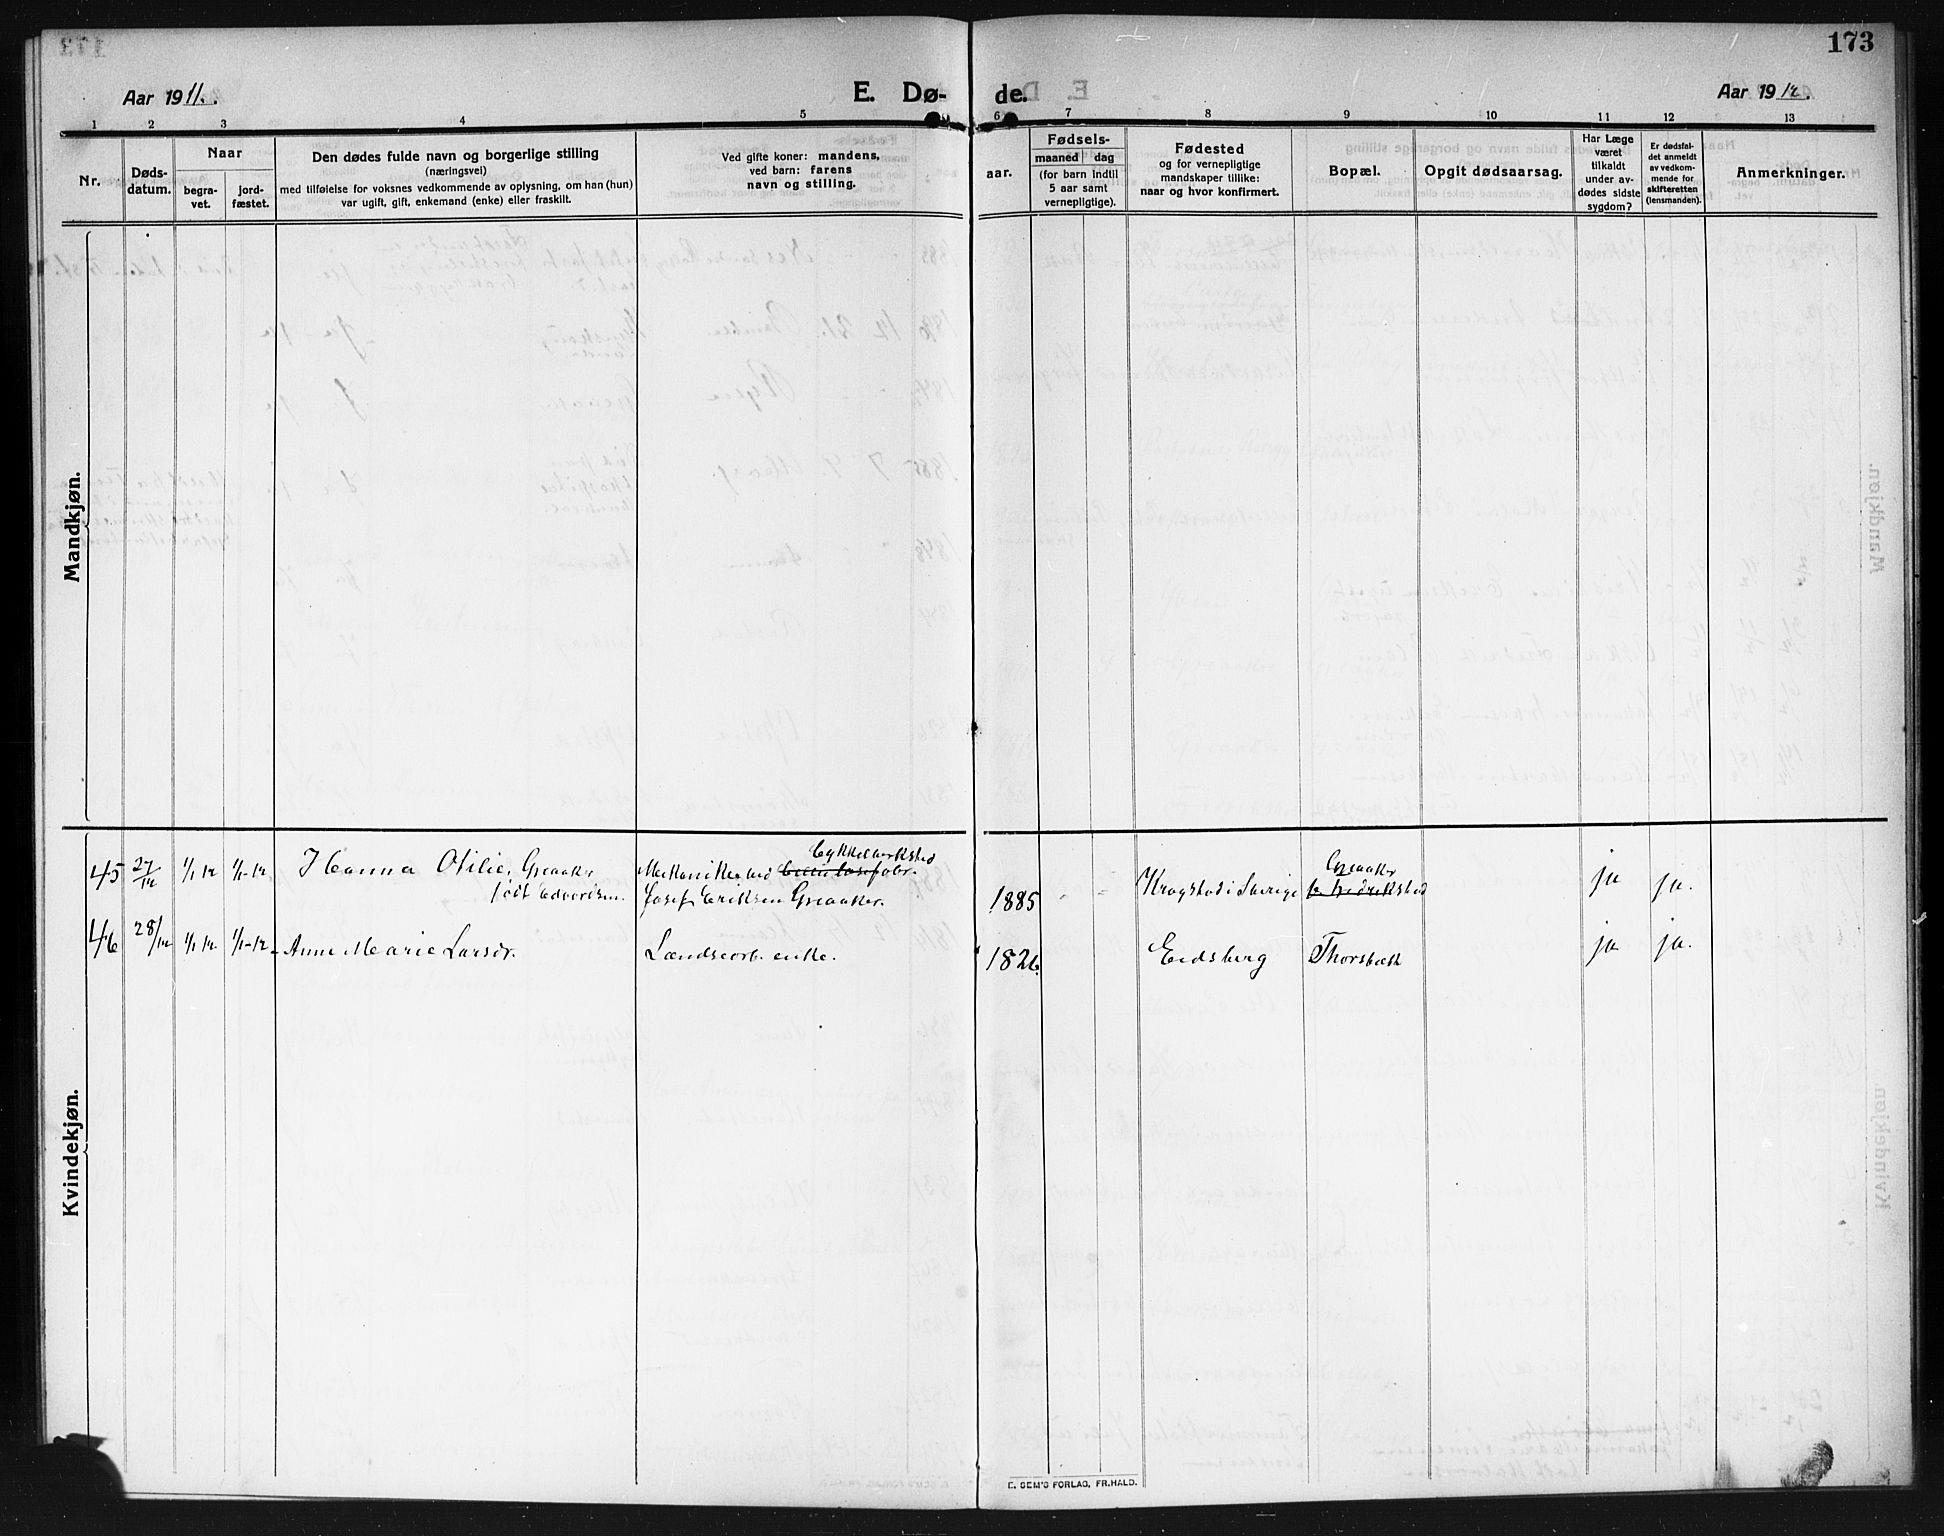 173
Aar 1911.
E. Dø-
de.
Aar 1912.
1 2 3 4 5 6 7 8 9 10 11 12 13
Nr.
Døds-
datum.
Naar
begra-
vet.
jord-
fæstet.
Den dødes fulde navn og borgerlige stilling
(næringsvei)
med tilføielse for voksnes vedkommende av oplysning, om han (hun)
var ugift, gift, enkemand (enke) eller fraskilt.
Ved gifte koner: mandens,
ved barn: farens
navn og stilling.
aar.
Fødsels-
maaned dag
(for barn indtil
5 aar samt
vernepligtige).
Fødested
og for vernepligtige
mandskaper tillike:
naar og hvor konfirmert.
Bopæl.
Opgit dødsaarsag.
Har Læge
været
tilkaldt
under av-
dødes sidste
sygdom?
Er dødsfal-
det anmeldt
av vedkom-
mende for
skifteretten
(lensmanden).
Anmerkninger.
Mandkjøn.
Kvindekjøn.
45 27/12 1/1 12 1/1-12 Hanna Otilie Greaaker
født Edvardsen.
Mekaniker ved
Cykkelverksted
Josef Eriksen Greaaker.
1885 - - Krogstad i Sverige
Greaaker
Fredrikstad
ja ja.
46 28/12 1/1 12 1/1-12 Anne Marie Larsdr. Landseorb. enke. 1826. Eidsberg Thorsbæk ja ja.
E. SEM'S FORLAG, FR.HALD.